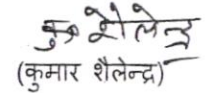 कु शैलेन्द्र
(कुमार शैलेन्द्र)